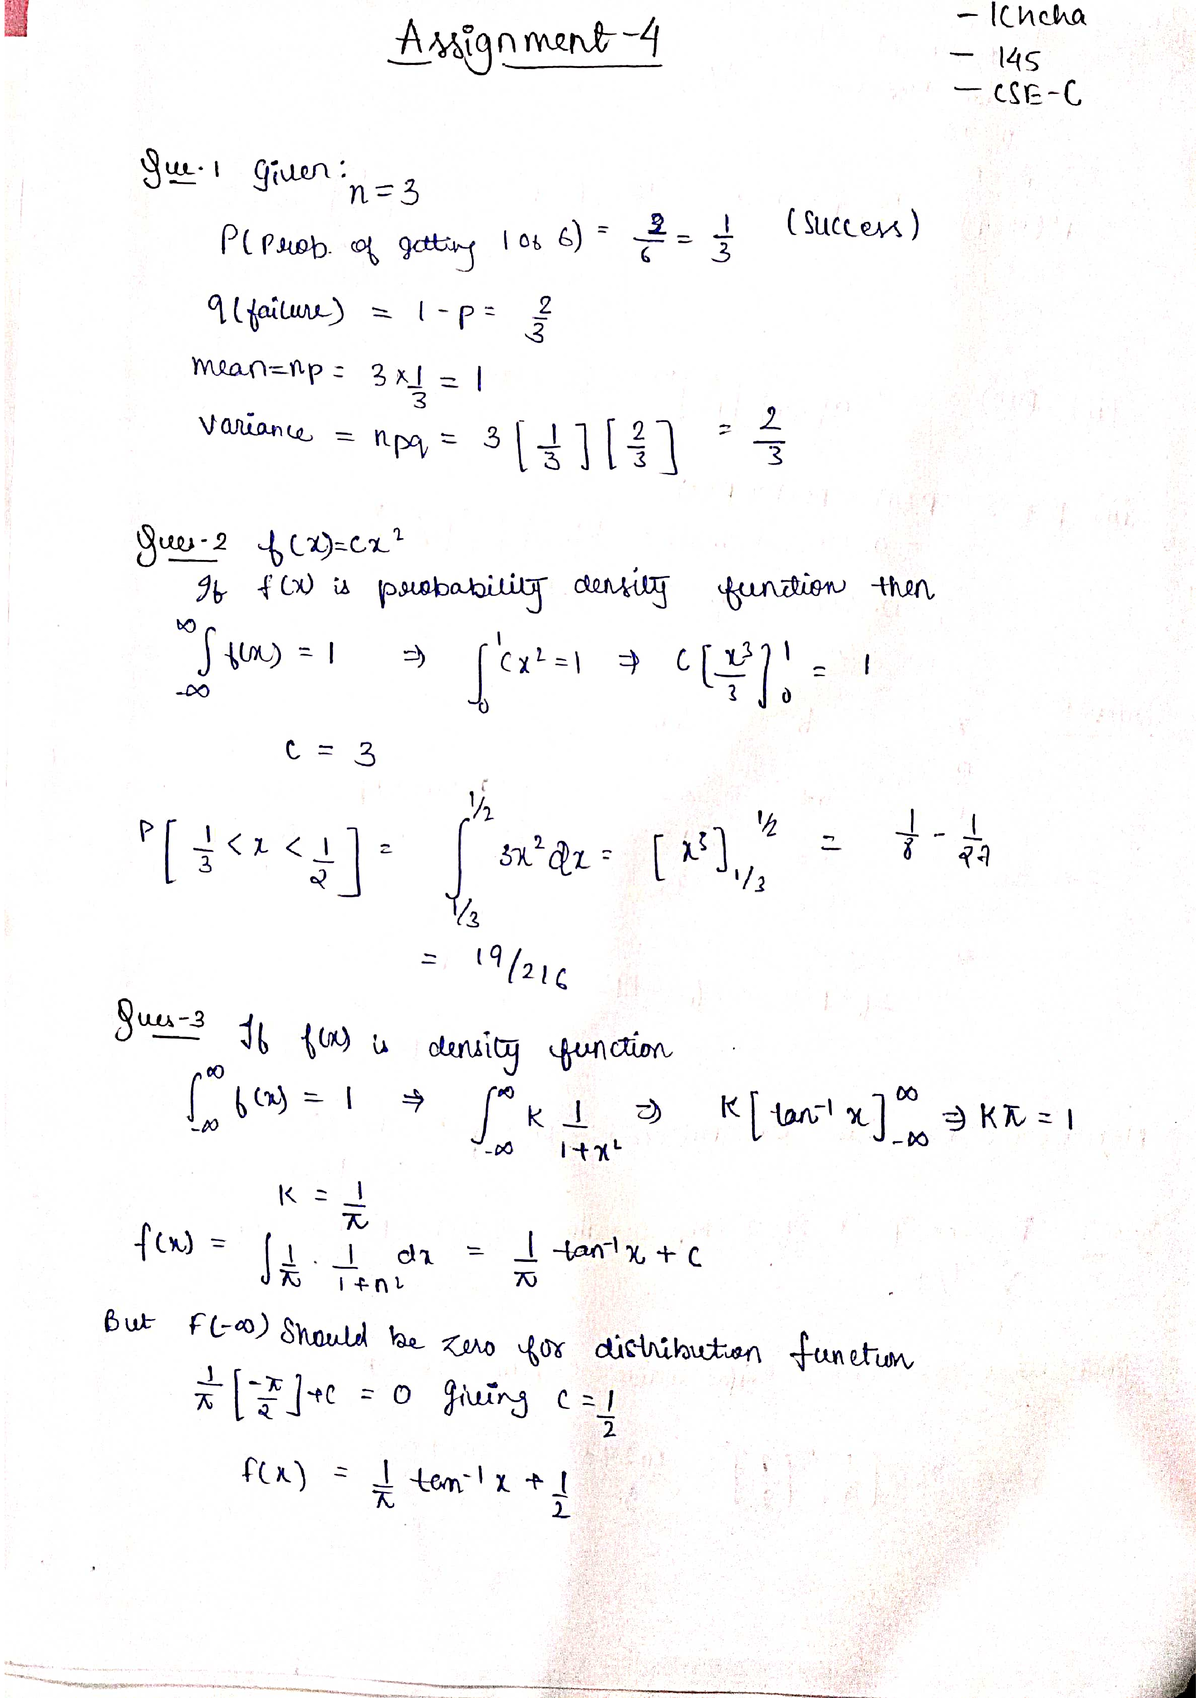 Assignment-4
- Ichcha
- 145
- CSE-C
Que.1 Given:
n = 3
P(Prob. of getting 1 or 6) = 2/6 = 1/3 (Success)
q(failure) = 1 - p = 2/3
mean = np = 3 × 1/3 = 1
Variance = npq = 3 [1/3] [2/3] = 2/3
Ques-2 f(x) = cx²
If f(x) is probability density function then
∫_{-∞}^{∞} f(x) = 1 ⇒ ∫_0^1 cx² = 1 ⇒ C[x³/3]_0^1 = 1
C = 3
P[1/3 < x < 1/2] = ∫_{1/3}^{1/2} 3x² dx = [x³]_{1/3}^{1/2} = 1/8 - 1/27
= 19/216
Ques-3 If f(x) is density function
∫_{-∞}^{∞} f(x) = 1 ⇒ ∫_{-∞}^{∞} K 1/1+x² ⇒ K[tan⁻¹ x]_{-∞}^{∞} ⇒ Kπ = 1
K = 1/π
f(x) = ∫ 1/π . 1/1+n² dx = 1/π tan⁻¹ x + C
But F(-∞) Should be zero for distribution function
1/π [-π/2] + C = 0 giving C = 1/2
f(x) = 1/π tan⁻¹ x + 1/2